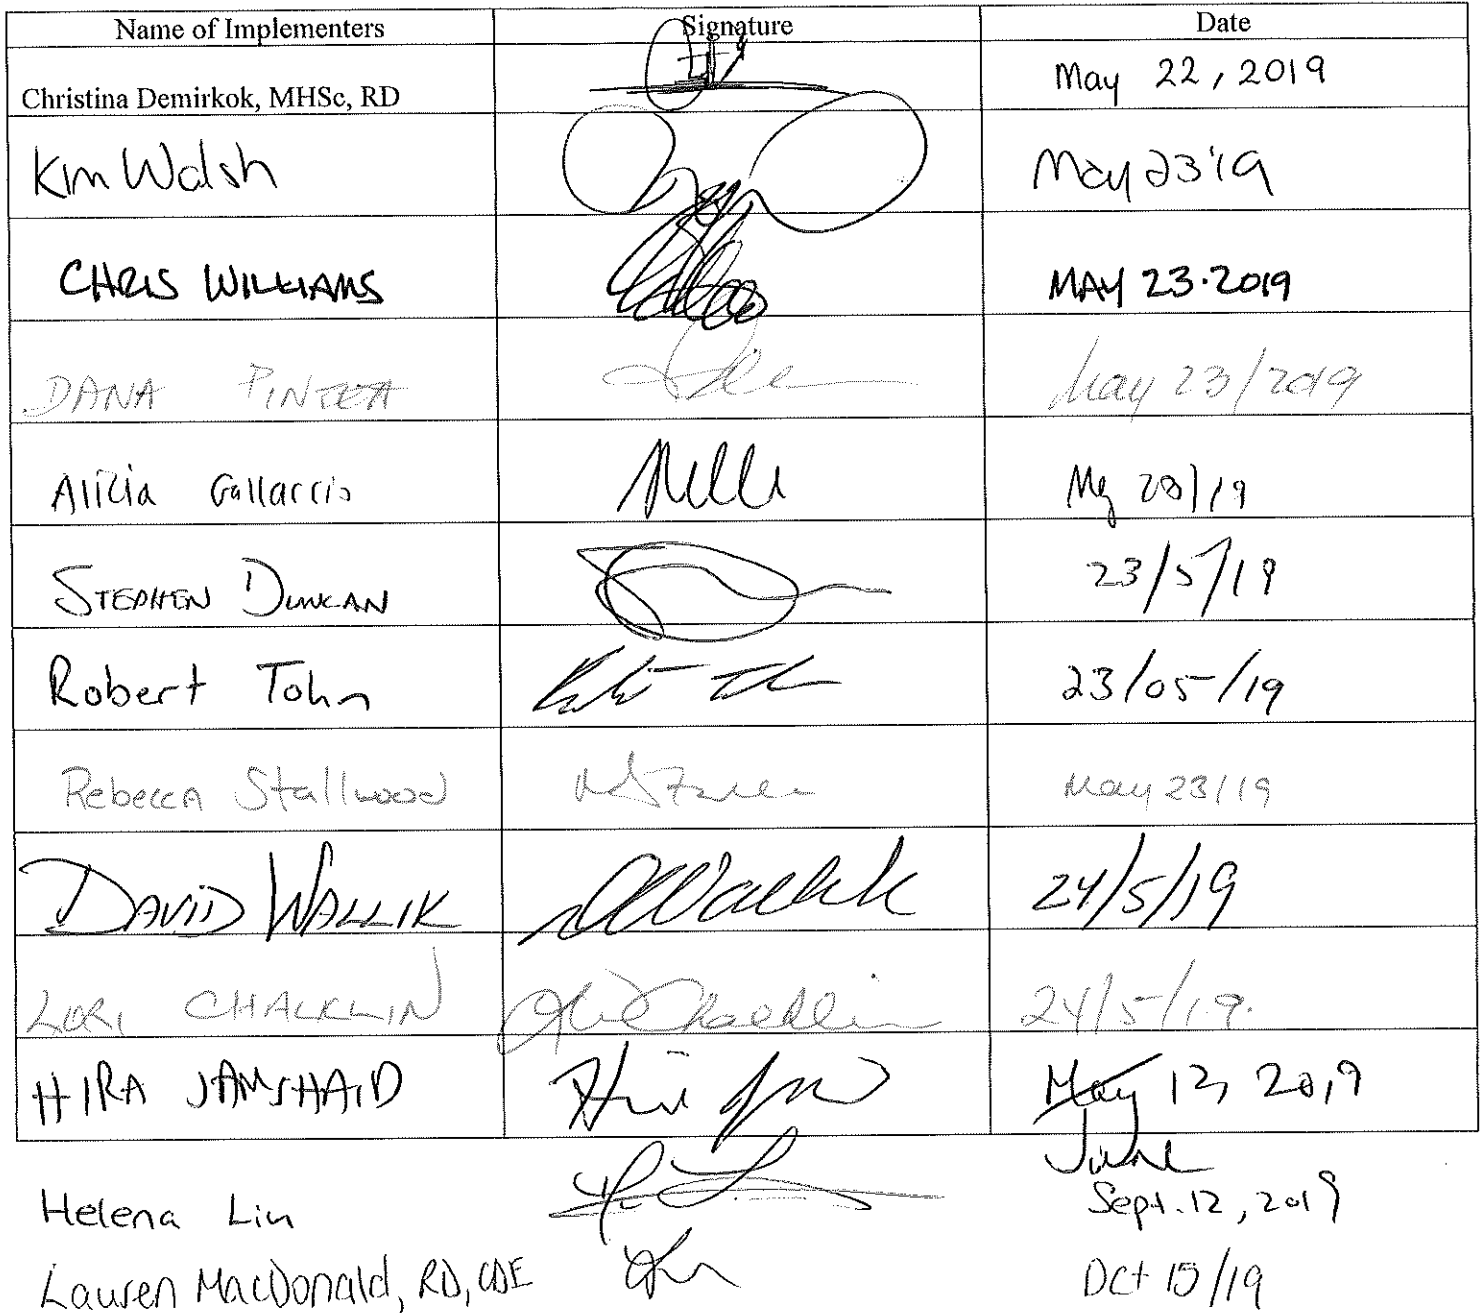 Name of Implementers Signature Date
Christina Demirkok, MHSc, RD May 22, 2019
Kim Walsh May 23'19
CHRIS WILLIAMS MAY 23.2019
DANA PINTEA May 23/2019
Alicia Gallaccio 23/19
STEPHEN DUNCAN 23/5/19
Robert Tohn 23/05/19
Rebecca Stallwood May 23/19
DAVID WALLIK 24/5/19
LORI CHALKLIN 24/5/19.
HIRA JAMSHAID May 12, 2019
June
Helena Liu Sept. 12, 2019
Lauren MacDonald, RD, CDE Oct 15/19